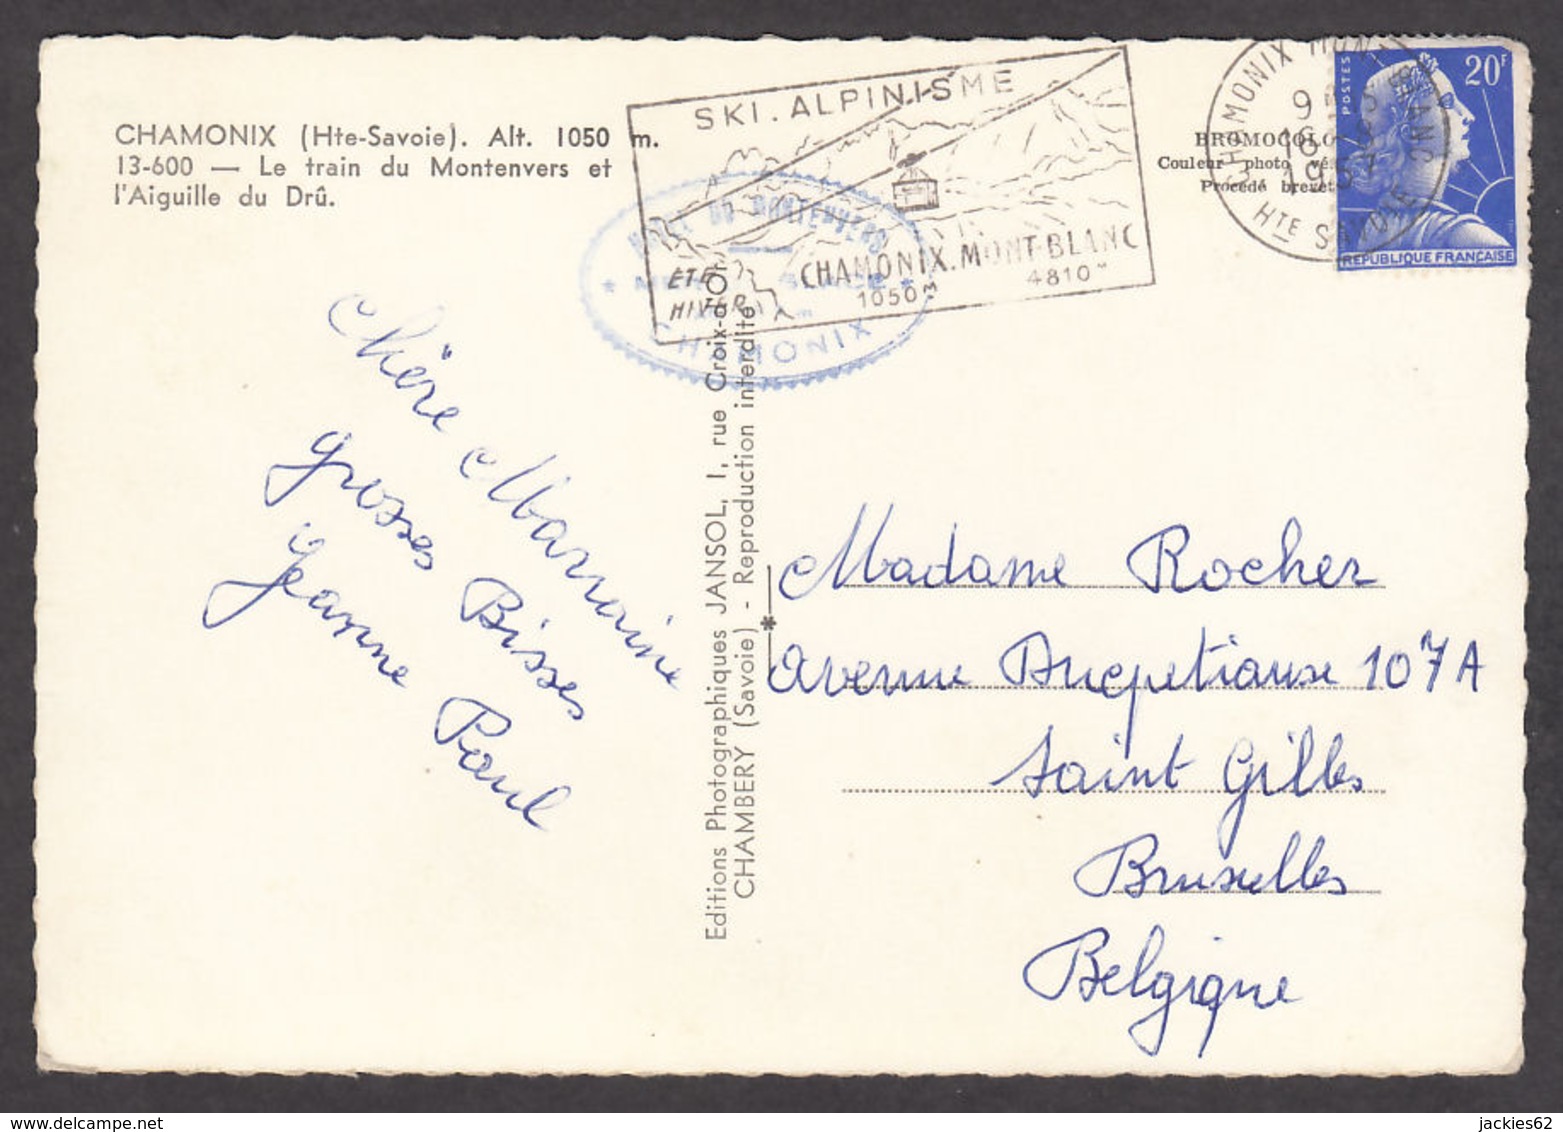 CHAMONIX (Hte-Savoie). Alt. 1050 m.
13-600 — Le train du Montenvers et
l'Aiguille du Drû.
SKI. ALPINISME
ÉTÉ
HIVER
CHAMONIX. MONT-BLANC
1050 m 4810 m
DU MONTENVERS
CHAMONIX
BROMOCOLO
Couleur photo vé
Procédé brevet
CHAMONIX MONT BLANC
Hte SAVOIE
POSTES
20F
REPUBLIQUE FRANÇAISE
Chère Marraine
grosses Bisses
Jeanne Paul
Editions Photographiques JANSOL, 1, rue Croix-d'Or
CHAMBERY (Savoie) - Reproduction interdite
Madame Rocher
avenue Ducpetiause 107A
Saint Gilles
Bruxelles
Belgique
jackies62